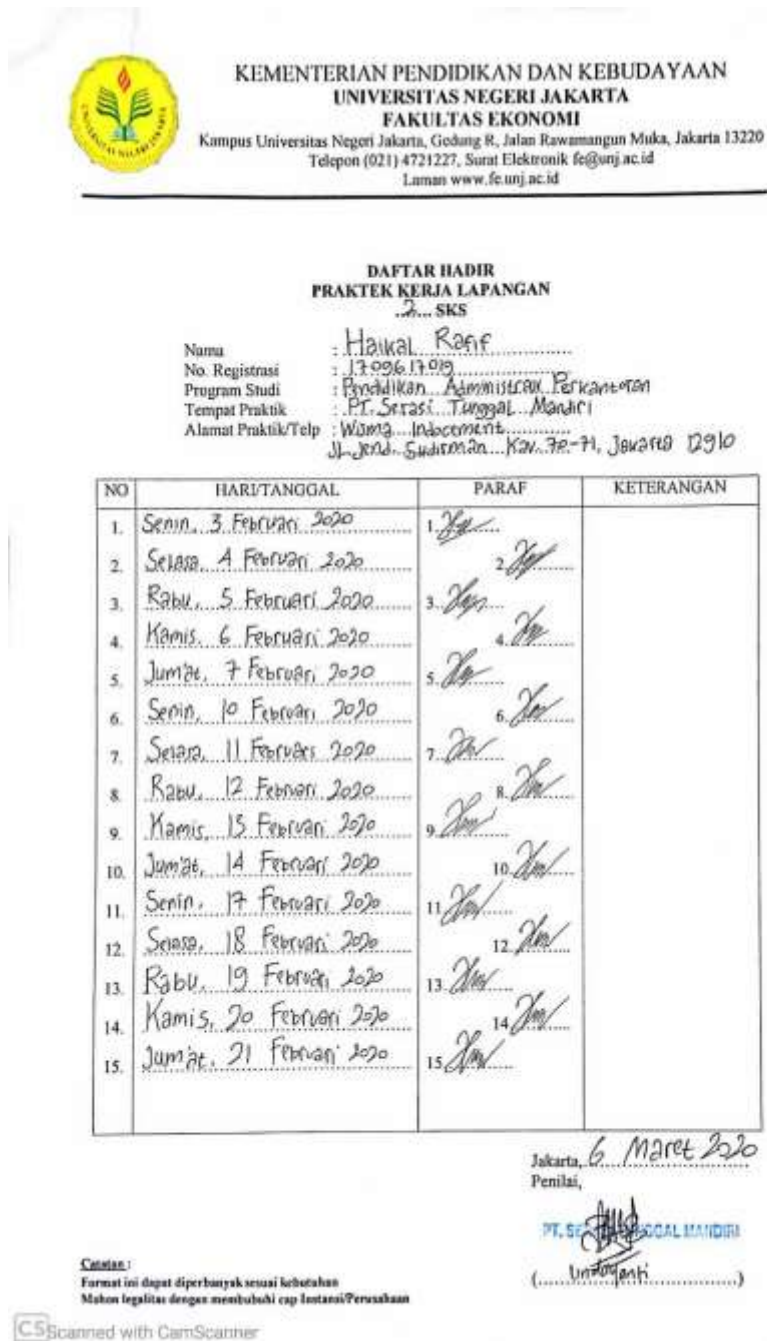 KEMENTERIAN PENDIDIKAN DAN KEBUDAYAAN
UNIVERSITAS NEGERI JAKARTA
FAKULTAS EKONOMI
Kampus Universitas Negeri Jakarta, Gedung R, Jalan Rawamangun Muka, Jakarta 13220
Telepon (021) 4721227, Surat Elektronik fe@unj.ac.id
Laman www.fe.unj.ac.id
DAFTAR HADIR
PRAKTEK KERJA LAPANGAN
..2... SKS
Nama : Haikal Rafif
No. Registrasi : 1709617019
Program Studi : Pendidikan Administrasi Perkantoran
Tempat Praktik : PT. Serasi Tunggal Mandiri
Alamat Praktik/Telp : Wisma Indocement
Jl. Jend. Sudirman Kav. 70-71, Jakarta 12910
NO HARI/TANGGAL PARAF KETERANGAN
1. Senin, 3 Februari 2020 1.
2. Selasa, 4 Februari 2020 2.
3. Rabu, 5 Februari 2020 3.
4. Kamis, 6 Februari 2020 4.
5. Jum'at, 7 Februari 2020 5.
6. Senin, 10 Februari 2020 6.
7. Selasa, 11 Februari 2020 7.
8. Rabu, 12 Februari 2020 8.
9. Kamis, 13 Februari 2020 9.
10. Jum'at, 14 Februari 2020 10.
11. Senin, 17 Februari 2020 11.
12. Selasa, 18 Februari 2020 12.
13. Rabu, 19 Februari 2020 13.
14. Kamis, 20 Februari 2020 14.
15. Jum'at, 21 Februari 2020 15.
Jakarta, 6 Maret 2020
Penilai,
PT. SE GGAL MANDIRI
(...............)
Catatan :
Format ini dapat diperbanyak sesuai kebutuhan
Mohon legalitas dengan membubuhi cap Instansi/Perusahaan
CS Scanned with CamScanner